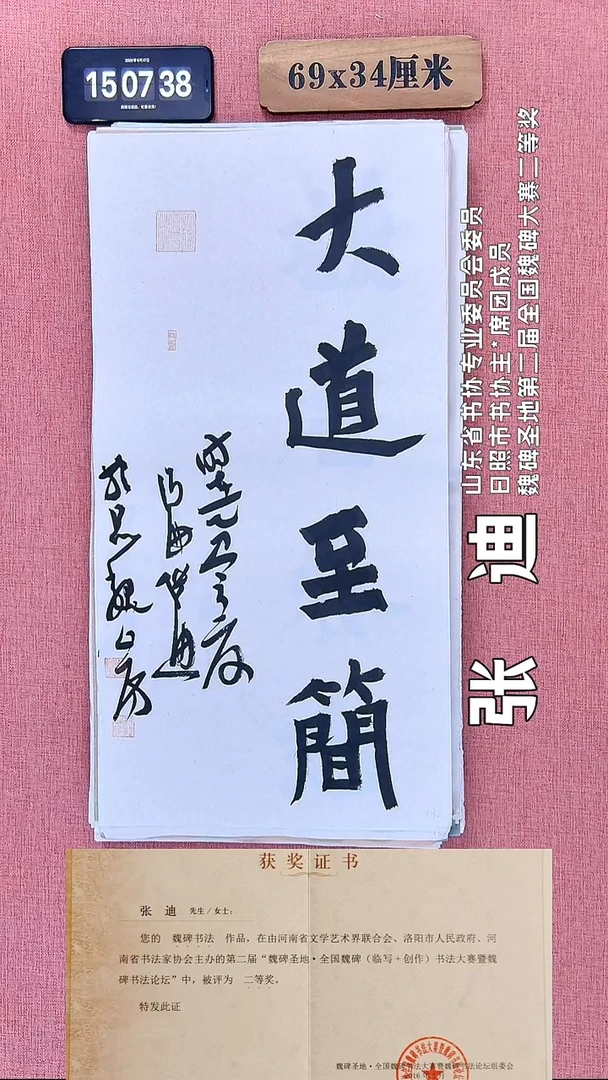 15 07 38
69x34厘米
大道至簡
山东省书协专业委员会委员
日照市书协主*席团成员
魏碑圣地第二届全国魏碑大赛二等奖
张 迪
获奖证书
张 迪 先生/女士:
您的 魏碑书法 作品,在由河南省文学艺术界联合会、洛阳市人民政府、河
南省书法家协会主办的第二届“魏碑圣地·全国魏碑(临写+创作)书法大赛暨魏
碑书法论坛”中,被评为 二等奖。
特发此证
魏碑圣地·全国魏碑书法大赛暨魏碑书法论坛组委会